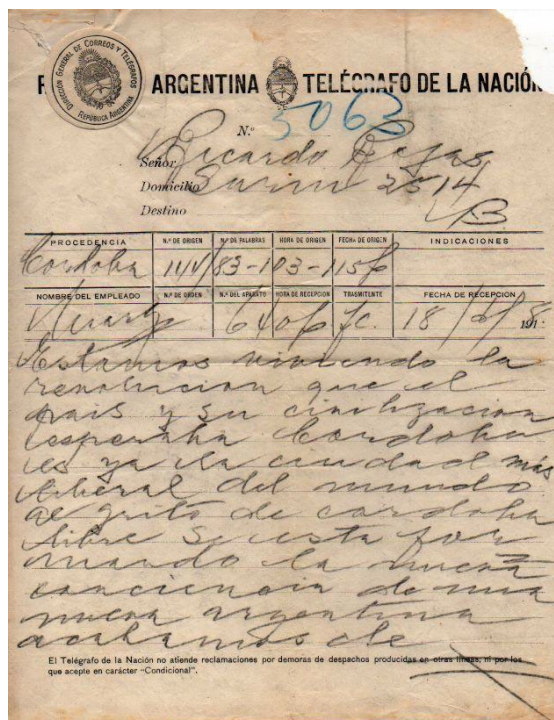 DIRECCIÓN GENERAL DE CORREOS Y TELÉGRAFOS
REPÚBLICA ARGENTINA
ARGENTINA TELÉGRAFO DE LA NACIÓN
N.º 5063
Señor Ricardo Rojas
Domicilio 2514
Destino
PROCEDENCIA N.º DE ORIGEN N.º DE PALABRAS HORA DE ORIGEN FECHA DE ORIGEN INDICACIONES
Cordoba 83-103-
NOMBRE DEL EMPLEADO N.º DE ORDEN N.º DEL APARATO HORA DE RECEPCION TRASMITENTE FECHA DE RECEPCION
18 191
Estamos viviendo la
revolucion que el
pais y su civilizacion
esperaba Cordoba
es ya la ciudad más
liberal del mundo
al grito de cordoba
libre se esta for
mando la nueva
conciencia de una
nueva argentina
acabamos de
El Telégrafo de la Nación no atiende reclamaciones por demoras de despachos producidas en otras líneas, ni por los
que acepte en carácter "Condicional".